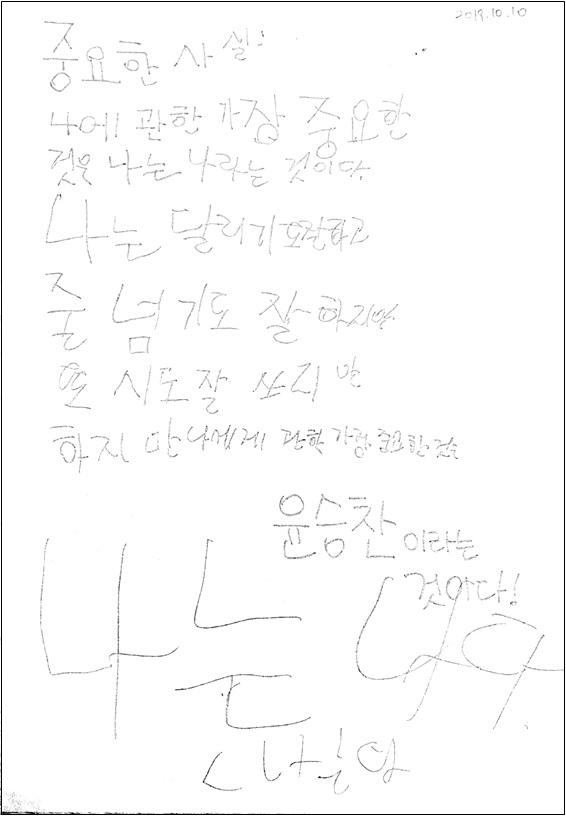 2019.10.10
중요한 사실:
나에 관한 가장 중요한
것은 나는 나라는 것이다.
나는 달리기도잘하고
줄 넘기도 잘하지만
또 시도잘 쓰지만
하지만 나에게 관한 가장 중요한 것은
윤승찬이라는
것이다!
나는 나야
나는 나야